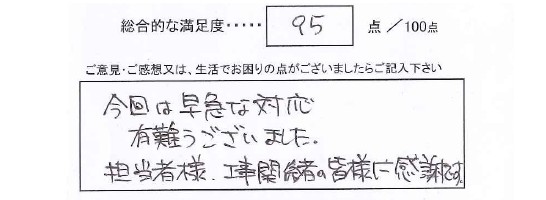 総合的な満足度・・・・・ 95 点／100点
ご意見・ご感想又は、生活でお困りの点がございましたらご記入下さい
今回は早急な対応
有難うございました。
担当者様、工事関緒の皆様に感謝です。